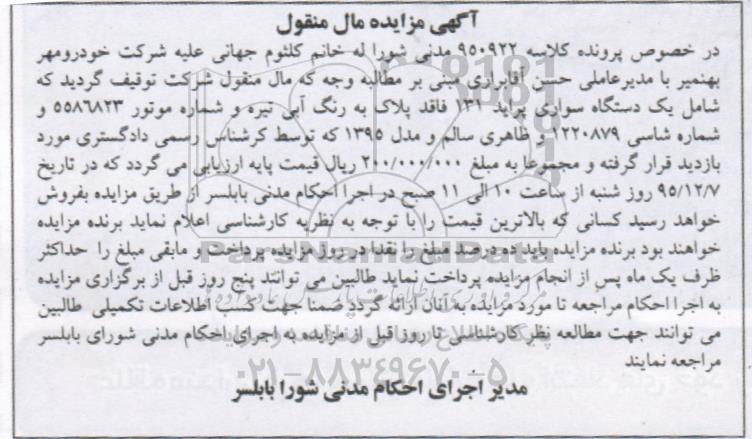 آگهی مزایده مال منقول
در خصوص پرونده کلاسه ۹۵۰۹۲۲ مدنی شورا له خانم کلثوم جهانی علیه شرکت خودرومهر
بهنمیر با مدیرعاملی حسن آقابراری مبنی بر مطالبه وجه که مال منقول شرکت توقیف گردید که
شامل یک دستگاه سواری پراید ۱۳۱ فاقد پلاک به رنگ آبی تیره و شماره موتور ۵۵۸۶۸۲۳ و
شماره شاسی ۱۲۲۰۸۷۹ و ظاهری سالم و مدل ۱۳۹۵ که توسط کرشناس رسمی دادگستری مورد
بازدید قرار گرفته و مجموعا به مبلغ ۲۰۰/۰۰۰/۰۰۰ ریال قیمت پایه ارزیابی می گردد که در تاریخ
۹۵/۱۲/۷ روز شنبه از ساعت ۱۰ الی ۱۱ صبح در اجرا احکام مدنی بابلسر از طریق مزایده بفروش
خواهد رسید کسانی که بالاترین قیمت را با توجه به نظریه کارشناسی اعلام نماید برنده مزایده
خواهند بود برنده مزایده باید ده درصد مبلغ را نقدا در روز مزایده پرداخت و مابقی مبلغ را حداکثر
ظرف یک ماه پس از انجام مزایده پرداخت نماید طالبین می توانند پنج روز قبل از برگزاری مزایده
به اجرا احکام مراجعه تا مورد مزایده به آنان ارائه گردد ضمنا جهت کسب اطلاعات تکمیلی طالبین
می توانند جهت مطالعه نظر کارشناسی تا روز قبل از مزایده به اجرای احکام مدنی شورای بابلسر
مراجعه نمایند
مدیر اجرای احکام مدنی شورا بابلسر
ParsNamadData
۰۲۱-۸۸۳۴۹۶۷۰-۵